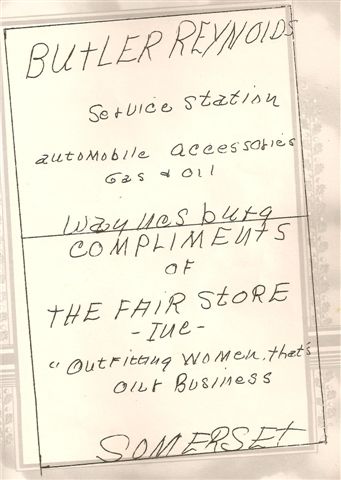 BUTLER REYNOlDS
Service Station
automobile accessories
Gas & Oil
Waynesburg
COMPLIMENTS
OF
THE FAIR STORE
- Inc -
"Outfitting Women, that's
Our Business
SOMERSET